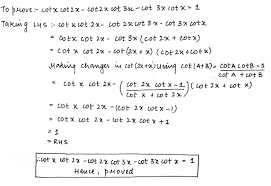 To prove :- cot x cot 2x - cot 2x cot 3x - cot 3x cot x = 1
Taking LHS :- cot x cot 2x - cot 2x cot 3x - cot 3x cot x
= cot x cot 2x - cot 3x (cot 2x + cot x)
= cot x cot 2x - cot (2x + x) (cot 2x + cot x)
Making changes in cot (2x + x) using cot (A+B) = cot A cot B - 1 / cot A + cot B
= cot x cot 2x - (cot 2x cot x - 1 / cot x + cot 2x) (cot 2x + cot x)
= cot x cot 2x - (cot 2x cot x - 1)
= cot x cot 2x - cot 2x cot x + 1
= 1
= RHS
∴ cot x cot 2x - cot 2x cot 3x - cot 3x cot x = 1
Hence, proved